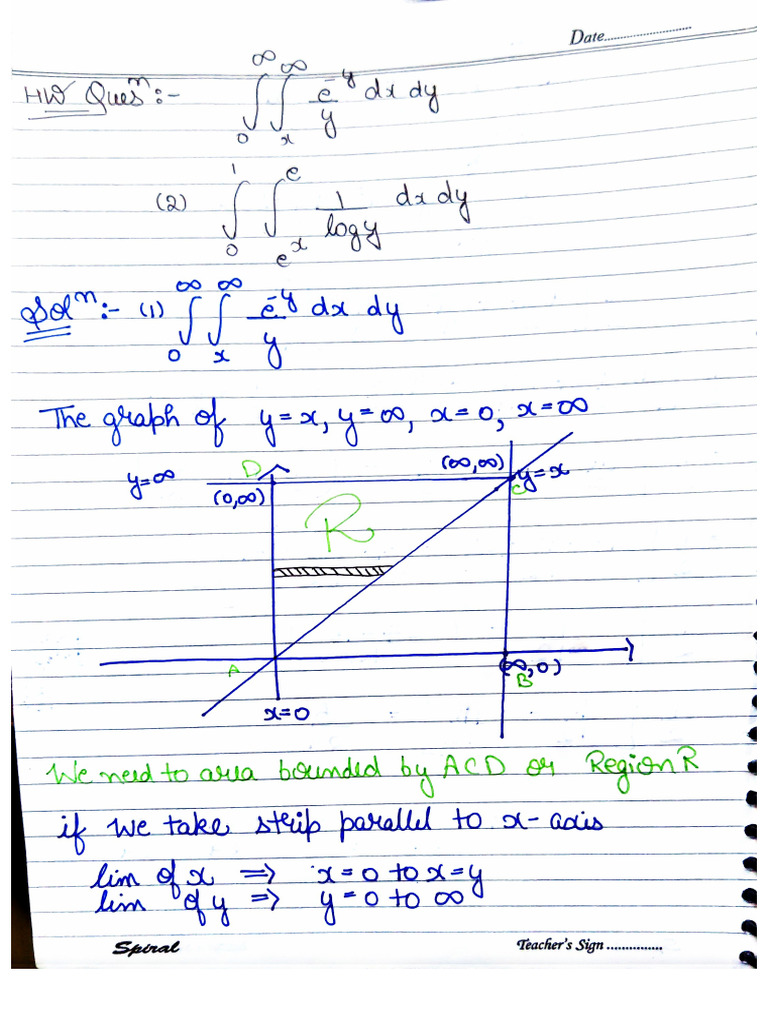 Date..............................
HW Quesⁿ:- ∫₀^∞ ∫ₓ^∞ e^-y/y dx dy
(2) ∫₀^1 ∫_{e^x}^e 1/log y dx dy
Solⁿ:- (1) ∫₀^∞ ∫ₓ^∞ e^-y/y dx dy
The graph of y=x, y=∞, x=0, x=∞
y=∞ D (∞,∞) y=x
(0,∞) C
R
A (∞,0)
B
x=0
We need to area bounded by ACD or Region R
if we take strip parallel to x-axis
lim of x ⇒ x=0 to x=y
lim of y ⇒ y=0 to ∞
Spiral Teacher's Sign ...............